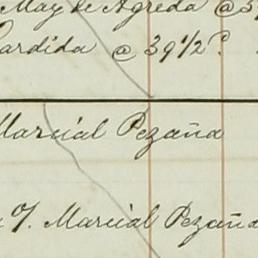 May de Agreda @ 3
Pardida @ 39 1/2 c.
Marcial Pezaña
y J. Marcial Pezaña